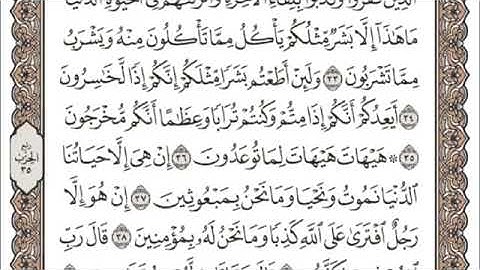 ٱلَّذِينَ كَفَرُواْ وَكَذَّبُواْ بِلِقَآءِ ٱلْأٓخِرَةِ وَأَتْرَفْنَٰهُمْ فِى ٱلْحَيَوٰةِ ٱلدُّنْيَا
مَا هَٰذَآ إِلَّا بَشَرٌ مِّثْلُكُمْ يَأْكُلُ مِمَّا تَأْكُلُونَ مِنْهُ وَيَشْرَبُ
مِمَّا تَشْرَبُونَ ٣٣ وَلَئِنْ أَطَعْتُم بَشَرًا مِّثْلَكُمْ إِنَّكُمْ إِذًا لَّخَٰسِرُونَ
٣٤ أَيَعِدُكُمْ أَنَّكُمْ إِذَا مِتُّمْ وَكُنتُمْ تُرَابًا وَعِظَٰمًا أَنَّكُم مُّخْرَجُونَ
٣٥ ۞ هَيْهَاتَ هَيْهَاتَ لِمَا تُوعَدُونَ ٣٦ إِنْ هِىَ إِلَّا حَيَاتُنَا
ٱلدُّنْيَا نَمُوتُ وَنَحْيَا وَمَا نَحْنُ بِمَبْعُوثِينَ ٣٧ إِنْ هُوَ إِلَّا
رَجُلٌ ٱفْتَرَىٰ عَلَى ٱللَّهِ كَذِبًا وَمَا نَحْنُ لَهُۥ بِمُؤْمِنِينَ ٣٨ قَالَ رَبِّ
ربع
الحزب
٣٥